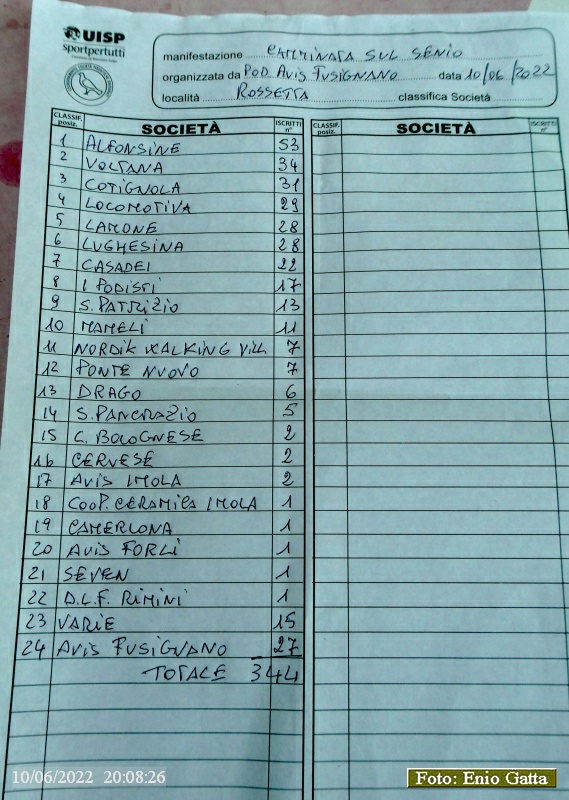 UISP
sportpertutti
manifestazione CAMMINATA SUL SENIO
organizzata da POD. AVIS FUSIGNANO data 10/06/2022
località ROSSETTA classifica Società
CLASSIF. posiz. SOCIETÀ ISCRITTI n° CLASSIF. posiz. SOCIETÀ ISCRITTI n°
1 ALFONSINE 53
2 VOLTANA 34
3 COTIGNOLA 31
4 LOCOMOTIVA 29
5 LAMONE 28
6 LUGHESINA 28
7 CASADEI 22
8 I PODISTI 17
9 S. PATRIZIO 13
10 MAMELI 11
11 NORDIK WALKING VILL 7
12 PONTE NUOVO 7
13 DRAGO 6
14 S. PANCRAZIO 5
15 C. BOLOGNESE 2
16 CERVESE 2
17 AVIS IMOLA 2
18 COOP. CERAMICA IMOLA 1
19 CAMERLONA 1
20 AVIS FORLÌ 1
21 SEVEN 1
22 D.L.F. RIMINI 1
23 VARIE 15
24 AVIS FUSIGNANO 27
TOTALE 344
10/06/2022 20:08:26
Foto: Enio Gatta